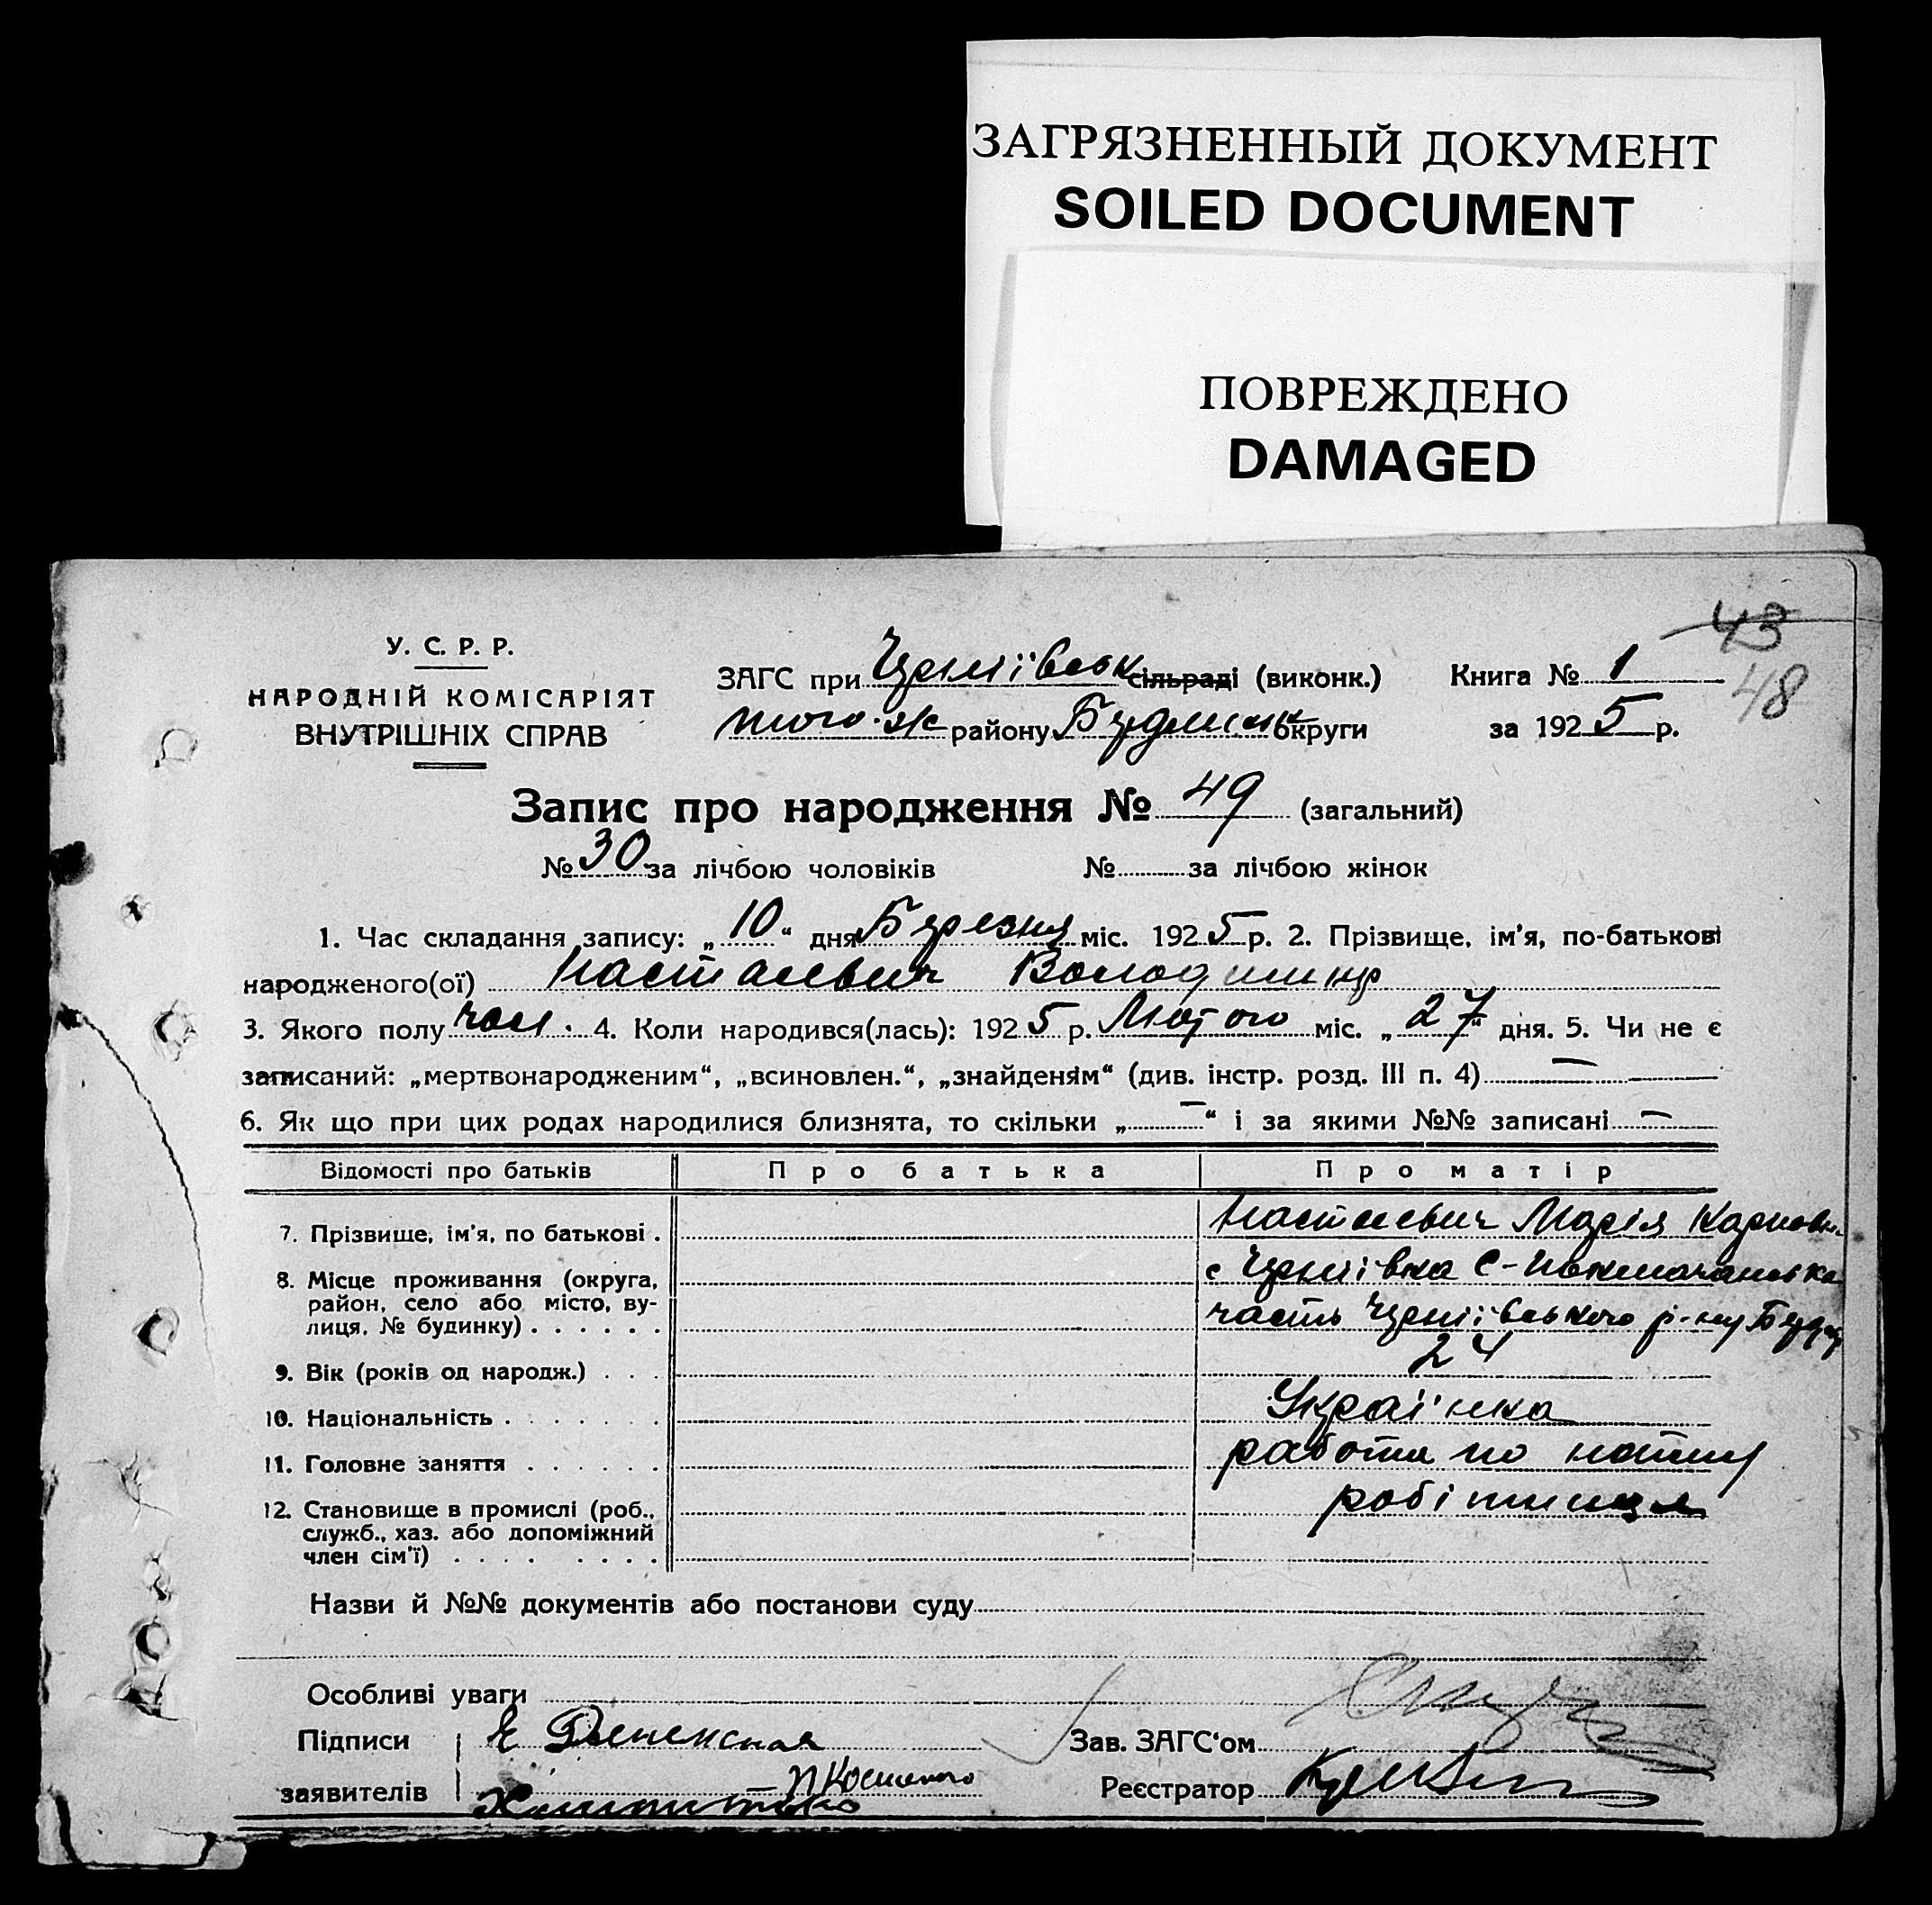 ЗАГРЯЗНЕННЫЙ ДОКУМЕНТ
SOILED DOCUMENT
ПОВРЕЖДЕНО
DAMAGED
43
48
У. С. Р. Р.
НАРОДНІЙ КОМІСАРІЯТ
ВНУТРІШНІХ СПРАВ
ЗАГС при сільраді (виконк.) Книга № 1
того-ж району округи за 1925 р.
Запис про народження № 49 (загальний)
№ 30 за лічбою чоловіків № за лічбою жінок
1. Час складання запису: „10“ дня Березня міс. 1925 р. 2. Прізвище, ім'я, по-батькові
народженого(ої) Володимир
3. Якого полу чол. 4. Коли народився(лась): 1925 р. Лютого міс. „27“ дня. 5. Чи не є
записаний: „мертвонародженим“, „всиновлен.“, „знайденям“ (див. інстр. розд. III п. 4) —
6. Як що при цих родах народилися близнята, то скільки „—“ і за якими №№ записані —
Відомості про батьків Про батька Про матір
7. Прізвище, ім'я, по батькові . Марія
8. Місце проживання (округа,
район, село або місто, ву-
лиця, № будинку) . . . . . . часть
9. Вік (років од народж.) . . . 24
10. Національність . . . . . . . Українка
11. Головне заняття . . . . . . работа по найму
12. Становище в промислі (роб.,
служб., хаз. або допоміжний
член сім'ї) . . . . . . . . робітниця
Назви й №№ документів або постанови суду
Особливі уваги
Підписи
Зав. ЗАГС'ом
заявителів
Реєстратор